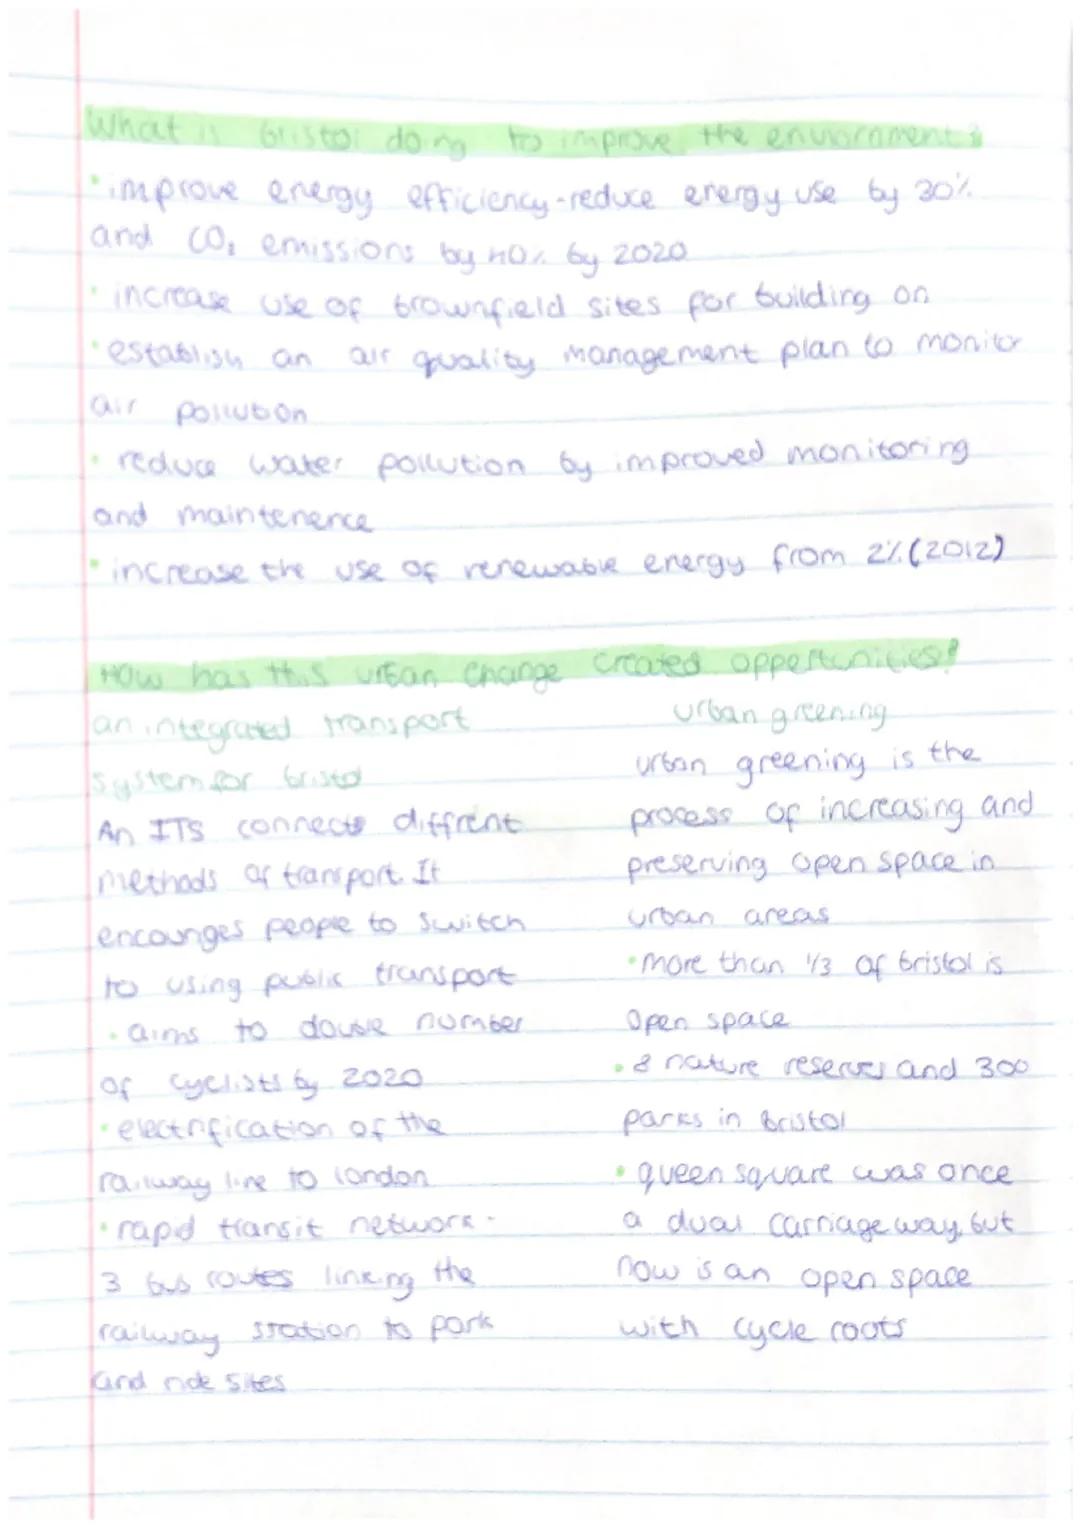 What is bristol doing to improve the enviornment?
• improve energy efficiency - reduce energy use by 30%
and CO₂ emissions by 40% by 2020
• increase use of brownfield sites for building on
• establish an air quality management plan to monitor
air pollution
• reduce water pollution by improved monitoring
and maintenence
• increase the use of renewable energy from 2% (2012)
How has this urban change created oppertunities?
an integrated transport
system for bristol
An ITS connects diffrent
methods of transport. It
encourges people to switch
to using public transport
• aims to double number
of cyclists by 2020
• electrification of the
railway line to london
• rapid transit network -
3 bus routes linking the
railway station to park
and ride sites
urban greening
urban greening is the
process of increasing and
preserving open space in
urban areas
• more than 1/3 of bristol is
open space
• 8 nature reserves and 300
parks in Bristol
• queen square was once
a dual carriageway, but
now is an open space
with cycle roots